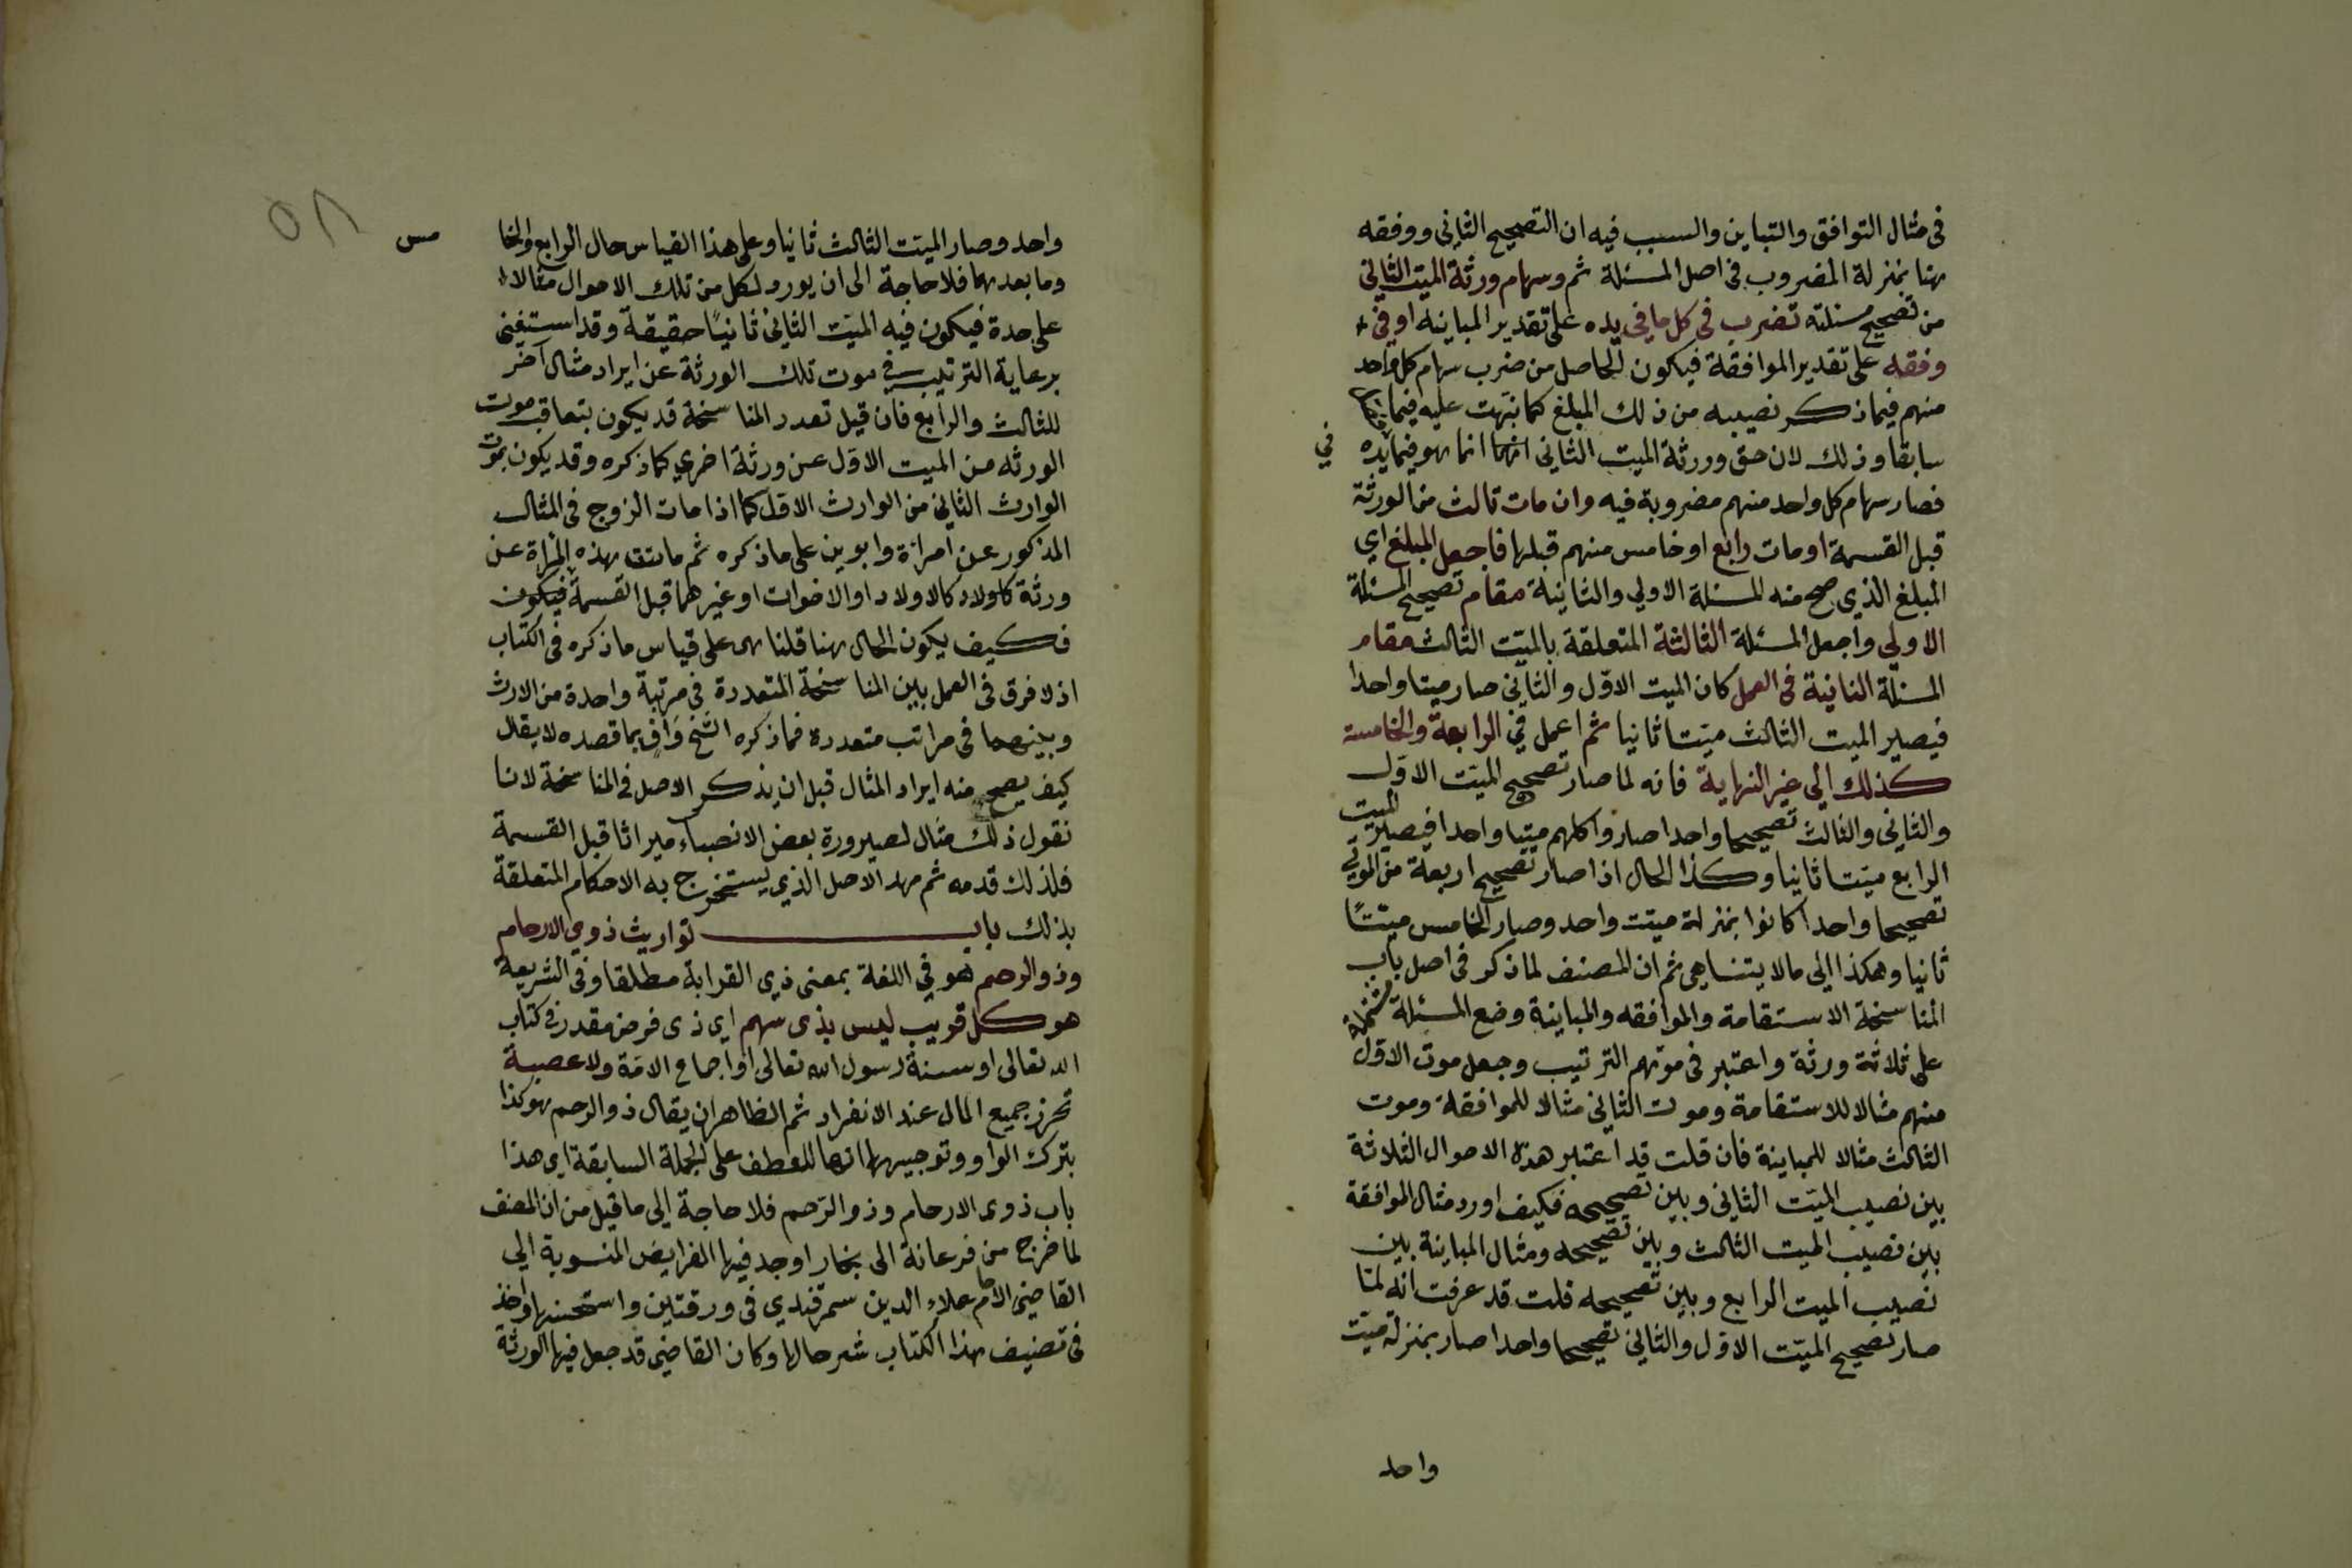 فى مثال التوافق والتباين والسبب فيه ان التصحيح الثانى ووفقه
ههنا بمنزلة المضروب فى اصل المسئلة ثم وسهام ورثة الميت الثانى
من تصحيح مسئلته تضرب فى كل ما فى يده على تقدير المباينه او فى
وفقه على تقدير الموافقة فيكون الحاصل من ضرب سهام كل واحد
منهم فيما ذكر نصيبه من ذلك المبلغ كما نبّهت عليه فيما
سابقا وذلك لان حق وورثة الميت الثانى انما هو فيما يده
فى
فصار سهام كل واحد منهم مضروبة فيه وان مات ثالث من الورثة
قبل القسمة او مات رابع او خامس منهم قبلها فاجعل المبلغ اي
المبلغ الذي صح منه المسئلة الاولي والثانية مقام تصحيح المسئلة
الاولي واجعل المسئلة الثالثة المتعلقة بالميّت الثالث مقام
المسئلة الثانية فى العمل كان الميت الاوّل والثاني صار ميتا واحدا
فيصير الميت الثالث ميّتا ثانيا ثم اعمل في الرابعة والخامسة
كذلك الى غير النهاية فانه لما صار تصحيح الميّت الاوّل
والثاني والثالث تصحيحا واحدا صاروا كلهم ميّتا واحدا فيصير الميت
الرابع ميّتا ثانيا وكذا الحال اذا صار تصحيح اربعة من الموتي
تصحيحا واحدا كانوا بمنزلة ميّت واحد وصار الخامس ميّتًا
ثانيا وهكذا الي مالا يتناهى ثم ان المصنف لما ذكر فى اصل باب
المناسخة الاستقامة والموافقه والمباينة وضع المسئلة مشتملة
على ثلاثة ورثة واعتبر فى موتهم الترتيب وجعل موت الاوّل
منهم مثالا للاستقامة وموت الثاني مثالا للموافقة وموت
الثالث مثالا للمباينة فان قلت قد اعتبر هذه الاحوال الثلاثة
بين نصيب الميّت الثاني وبين تصحيحه فكيف اورد مثال الموافقة
بين نصيب الميت الثالث وبين تصحيحه ومثال المباينة بين
نصيب الميت الرابع وبين تصحيحه قلت قد عرفت انه لمّا
صار تصحيح الميّت الاوّل والثاني تصحيحا واحدا صار بمنزلة ميّت
واحد
٥٨
واحد وصار الميّت الثالث ثانيا وعلى هذا القياس حال الرابع والخا
مس
وما بعدهما فلا حاجة الى ان يورد لكل من تلك الاحوال مثالا
على حدة فيكون فيه الميّت الثانى ثانيًا حقيقة وقد استغنى
برعاية الترتيب في موت تلك الورثة عن ايراد مثال آخر
للثالث والرابع فان قيل تعدد المناسخة قد يكون بتعاقب موت
الورثه من الميت الاوّل عن ورثة اخري كما ذكره وقد يكون بموت
الوارث الثاني من الوارث الاوّل كما اذا مات الزوج فى المثال
المذكور عن امرأة وابوين على ما ذكره ثم ماتت هذه المرأة عن
ورثة كالاولاد او الاخوات او غيرهما قبل القسمة فيكون
فكيف يكون الحال ههنا قلنا هى على قياس ما ذكره فى الكتاب
اذ لا فرق فى العمل بين المناسخة المتعددة فى مرتبة واحدة من الارث
وبينهما فى مراتب متعددة فما ذكره الشيخ وَافٍ بما قصده لا يقال
كيف يصحّ منه ايراد المثال قبل ان يذكر الاصل فى المناسخة لانا
نقول ذلك مثال لصيرورة بعض الانصباء ميراثا قبل القسمة
فلذلك قدمه ثم مهد الاصل الذي يستخرج به الاحكام المتعلقة
بذلك باب توارث ذوي الارحام
وذو الرحم هو في اللغة بمعنى ذي القرابة مطلقا وفى الشريعة
هو كل قريب ليس بذى سهم اي ذى فرض مقدر فى كتاب
الله تعالى او سنة رسول الله تعالى او اجماع الامّة ولا عصبة
تحرز جميع المال عند الانفراد ثم الظاهر ان يقال ذو الرحم هو كذا
بترك الواو وتوجيهها انها للعطف على الجملة السابقة اي هذا
باب ذوى الارحام وذو الرّحم فلا حاجة الى ما قيل من ان المصنف
لما خرج من فرعانة الى بخارا وجد فيها الفرايض المنسوبة الي
القاضى الامام علاء الدين سمرقندي فى ورقتين واستحسنها واخذ
فى تصنيف هذا الكتاب شرحا لها وكان القاضى قد جعل فيها الورثة